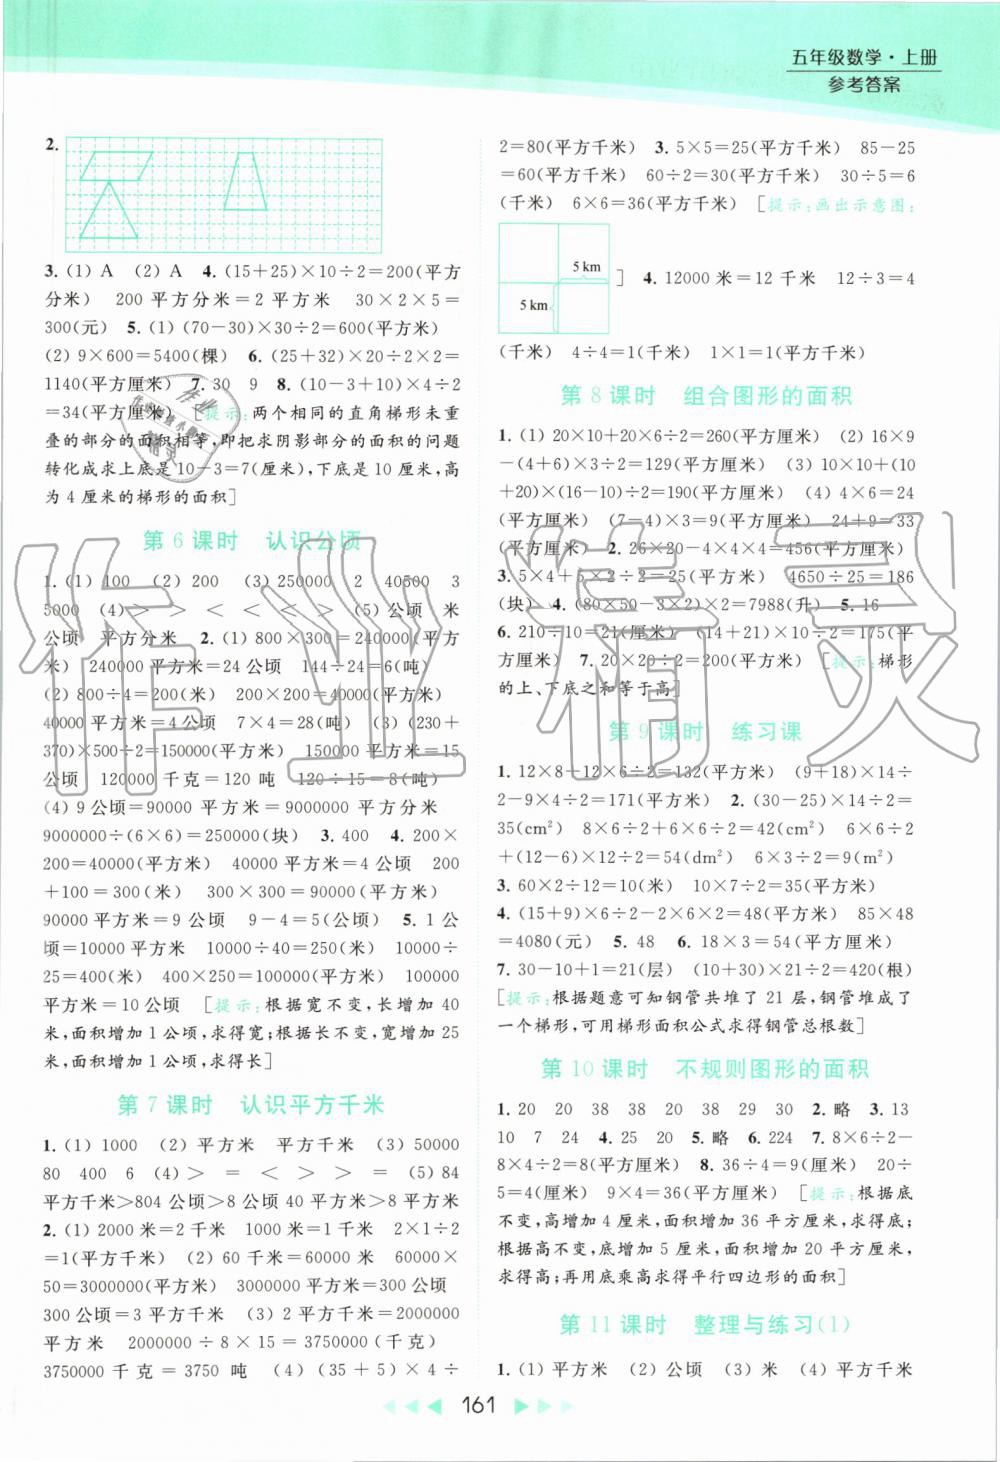 五年级数学·上册
参考答案
2.
3. (1) A (2) A 4. (15+25)×10÷2=200(平方
分米) 200 平方分米=2 平方米 30×2×5=
300(元) 5. (1) (70-30)×30÷2=600(平方米)
(2) 9×600=5400(棵) 6. (25+32)×20÷2×2=
1140(平方厘米) 7. 30 9 8. (10-3+10)×4÷2
=34(平方厘米) [提示:两个相同的直角梯形未重
叠的部分的面积相等,即把求阴影部分的面积的问题
转化成求上底是10-3=7(厘米),下底是 10 厘米,高
为 4 厘米的梯形的面积]
第 6 课时 认识公顷
1. (1) 100 (2) 200 (3) 250000 2 40500 3
5000 (4) > > < < < > (5) 公顷 米
公顷 平方分米 2. (1) 800×300=240000(平方
米) 240000 平方米=24 公顷 144÷24=6(吨)
(2) 800÷4=200(米) 200×200=40000(平方米)
40000 平方米=4 公顷 7×4=28(吨) (3) (230+
370)×500÷2=150000(平方米) 150000 平方米=15
公顷 120000 千克=120 吨 120÷15=8(吨)
(4) 9 公顷=90000 平方米=9000000 平方分米
9000000÷(6×6)=250000(块) 3. 400 4. 200×
200=40000(平方米) 40000 平方米=4 公顷 200
+100=300(米) 300×300=90000(平方米)
90000 平方米=9 公顷 9-4=5(公顷) 5. 1 公
顷=10000 平方米 10000÷40=250(米) 10000÷
25=400(米) 400×250=100000(平方米) 100000
平方米=10 公顷 [提示:根据宽不变,长增加 40
米,面积增加 1 公顷,求得宽;根据长不变,宽增加 25
米,面积增加 1 公顷,求得长]
第 7 课时 认识平方千米
1. (1) 1000 (2) 平方米 平方千米 (3) 50000
80 400 6 (4) > = < > > = (5) 84
平方千米>804 公顷>8 公顷 40 平方米>8 平方米
2. (1) 2000 米=2 千米 1000 米=1 千米 2×1÷2
=1(平方千米) (2) 60 千米=60000 米 60000×
50=3000000(平方米) 3000000 平方米=300 公顷
300 公顷=3 平方千米 (3) 2 平方千米=2000000
平方米 2000000÷8×15=3750000(千克)
3750000 千克=3750 吨 (4) (35+5)×4÷
2=80(平方千米) 3. 5×5=25(平方千米) 85-25
=60(平方千米) 60÷2=30(平方千米) 30÷5=6
(千米) 6×6=36(平方千米) [提示:画出示意图:
5 km
5 km
] 4. 12000 米=12 千米 12÷3=4
(千米) 4÷4=1(千米) 1×1=1(平方千米)
第 8 课时 组合图形的面积
1. (1) 20×10+20×6÷2=260(平方厘米) (2) 16×9
-(4+6)×3÷2=129(平方厘米) (3) 10×10+(10
+20)×(16-10)÷2=190(平方厘米) (4) 4×6=24
(平方厘米) (7-4)×3=9(平方厘米) 24+9=33
(平方厘米) 2. 26×20-4×4×4=456(平方厘米)
3. 5×4+5×2÷2=25(平方米) 4650÷25=186
(块) 4. (80×50-3×2)×2=7988(升) 5. 16
6. 210÷10=21(厘米) (14+21)×10÷2=175(平
方厘米) 7. 20×20÷2=200(平方米) [提示:梯形
的上、下底之和等于高]
第 9 课时 练习课
1. 12×8+12×6÷2=132(平方厘米) (9+18)×14÷
2-9×4÷2=171(平方米) 2. (30-25)×14÷2=
35(cm²) 8×6÷2+6×6÷2=42(cm²) 6×6÷2
+(12-6)×12÷2=54(dm²) 6×3÷2=9(m²)
3. 60×2÷12=10(米) 10×7÷2=35(平方米)
4. (15+9)×6÷2-2×6×2=48(平方米) 85×48
=4080(元) 5. 48 6. 18×3=54(平方厘米)
7. 30-10+1=21(层) (10+30)×21÷2=420(根)
[提示:根据题意可知钢管共堆了 21 层,钢管堆成了
一个梯形,可用梯形面积公式求得钢管总根数]
第 10 课时 不规则图形的面积
1. 20 20 38 38 20 38 29 30 2. 略 3. 13
10 7 24 4. 25 20 5. 略 6. 224 7. 8×6÷2-
8×4÷2=8(平方厘米) 8. 36÷4=9(厘米) 20÷
5=4(厘米) 9×4=36(平方厘米) [提示:根据底
不变,高增加 4 厘米,面积增加 36 平方厘米,求得底;
根据高不变,底增加 5 厘米,面积增加 20 平方厘米,
求得高;再用底乘高求得平行四边形的面积]
第 11 课时 整理与练习(1)
1. (1) 平方米 (2) 公顷 (3) 米 (4) 平方千米
161
作业精灵